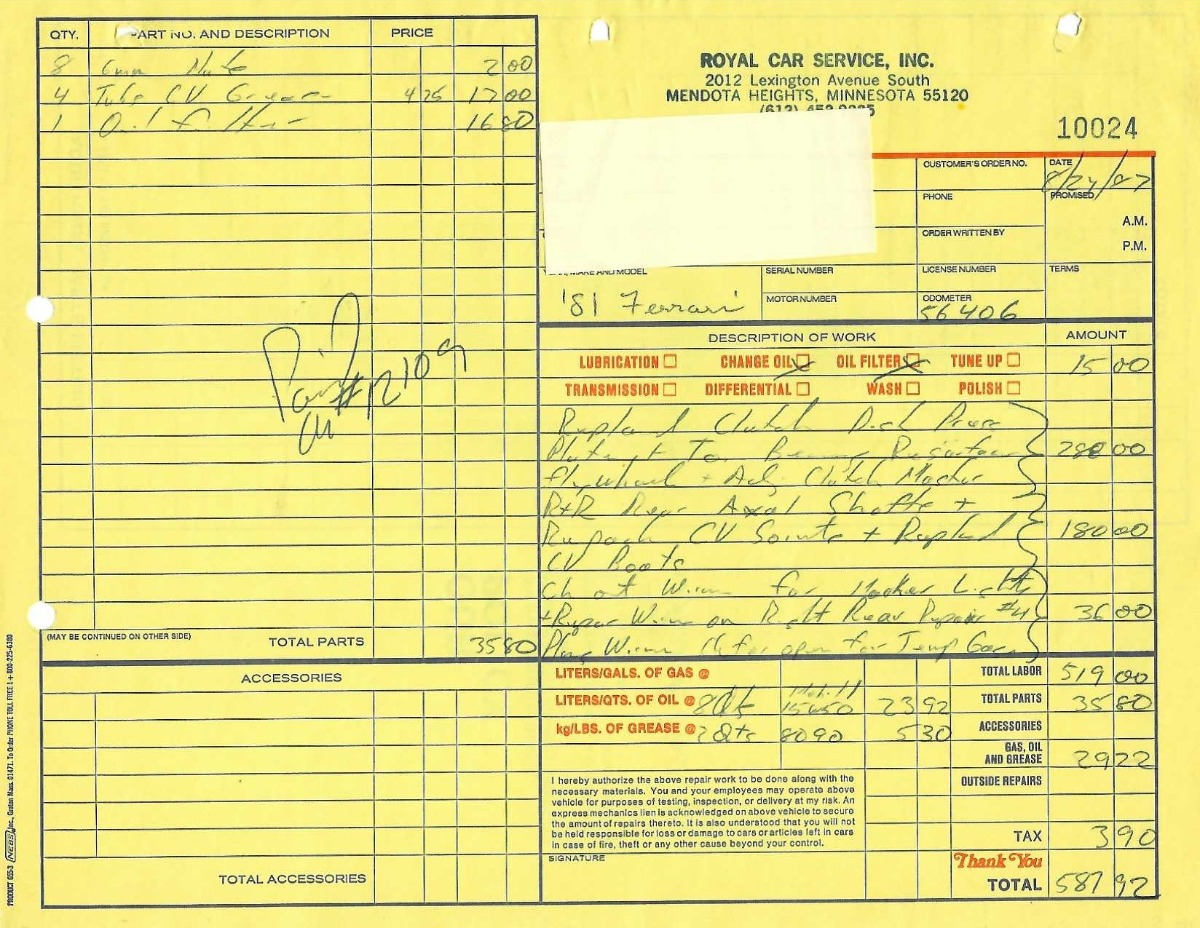 QTY. PART NO. AND DESCRIPTION PRICE
8 6mm Nuts 2 00
4 Tube CV Grease 4 25 17 00
1 Oil filter 16 80
Paid
#12109
(MAY BE CONTINUED ON OTHER SIDE) TOTAL PARTS 35 80
ACCESSORIES
TOTAL ACCESSORIES
PRODUCT 655-3 NEBS Inc., Groton, Mass. 01471. To Order PHONE TOLL FREE 1 + 800-225-6380
ROYAL CAR SERVICE, INC.
2012 Lexington Avenue South
MENDOTA HEIGHTS, MINNESOTA 55120
10024
CUSTOMER'S ORDER NO. DATE
8/24/87
PHONE PROMISED
A.M.
ORDER WRITTEN BY P.M.
MAKE AND MODEL SERIAL NUMBER LICENSE NUMBER TERMS
'81 Ferrari MOTOR NUMBER ODOMETER
56406
DESCRIPTION OF WORK AMOUNT
LUBRICATION CHANGE OIL OIL FILTER TUNE UP 15 00
TRANSMISSION DIFFERENTIAL WASH POLISH
Replaced Clutch Disk Press
Plate + T.o. Bearing 288 00
Flywheel + Adj Clutch
R+R Rear Axal Shafts +
Repack CV Joints + Replaced 180 00
CV Boots
Ch out Wires for Marker Lights
+ Repair Wire on Right Rear Repair #4 36 00
Plug Wire for Temp
LITERS/GALS. OF GAS @ TOTAL LABOR 519 00
LITERS/QTS. OF OIL @ 8 Qts Mobil 1 15W50 23 92 TOTAL PARTS 35 80
kg/LBS. OF GREASE @ 2 Qts 8090 5 30 ACCESSORIES
GAS, OIL
AND GREASE 29 22
I hereby authorize the above repair work to be done along with the OUTSIDE REPAIRS
necessary materials. You and your employees may operate above
vehicle for purposes of testing, inspection, or delivery at my risk. An
express mechanics lien is acknowledged on above vehicle to secure
the amount of repairs thereto. It is also understood that you will not
be held responsible for loss or damage to cars or articles left in cars
in case of fire, theft or any other cause beyond your control. TAX 3 90
SIGNATURE
Thank You
TOTAL 587 92